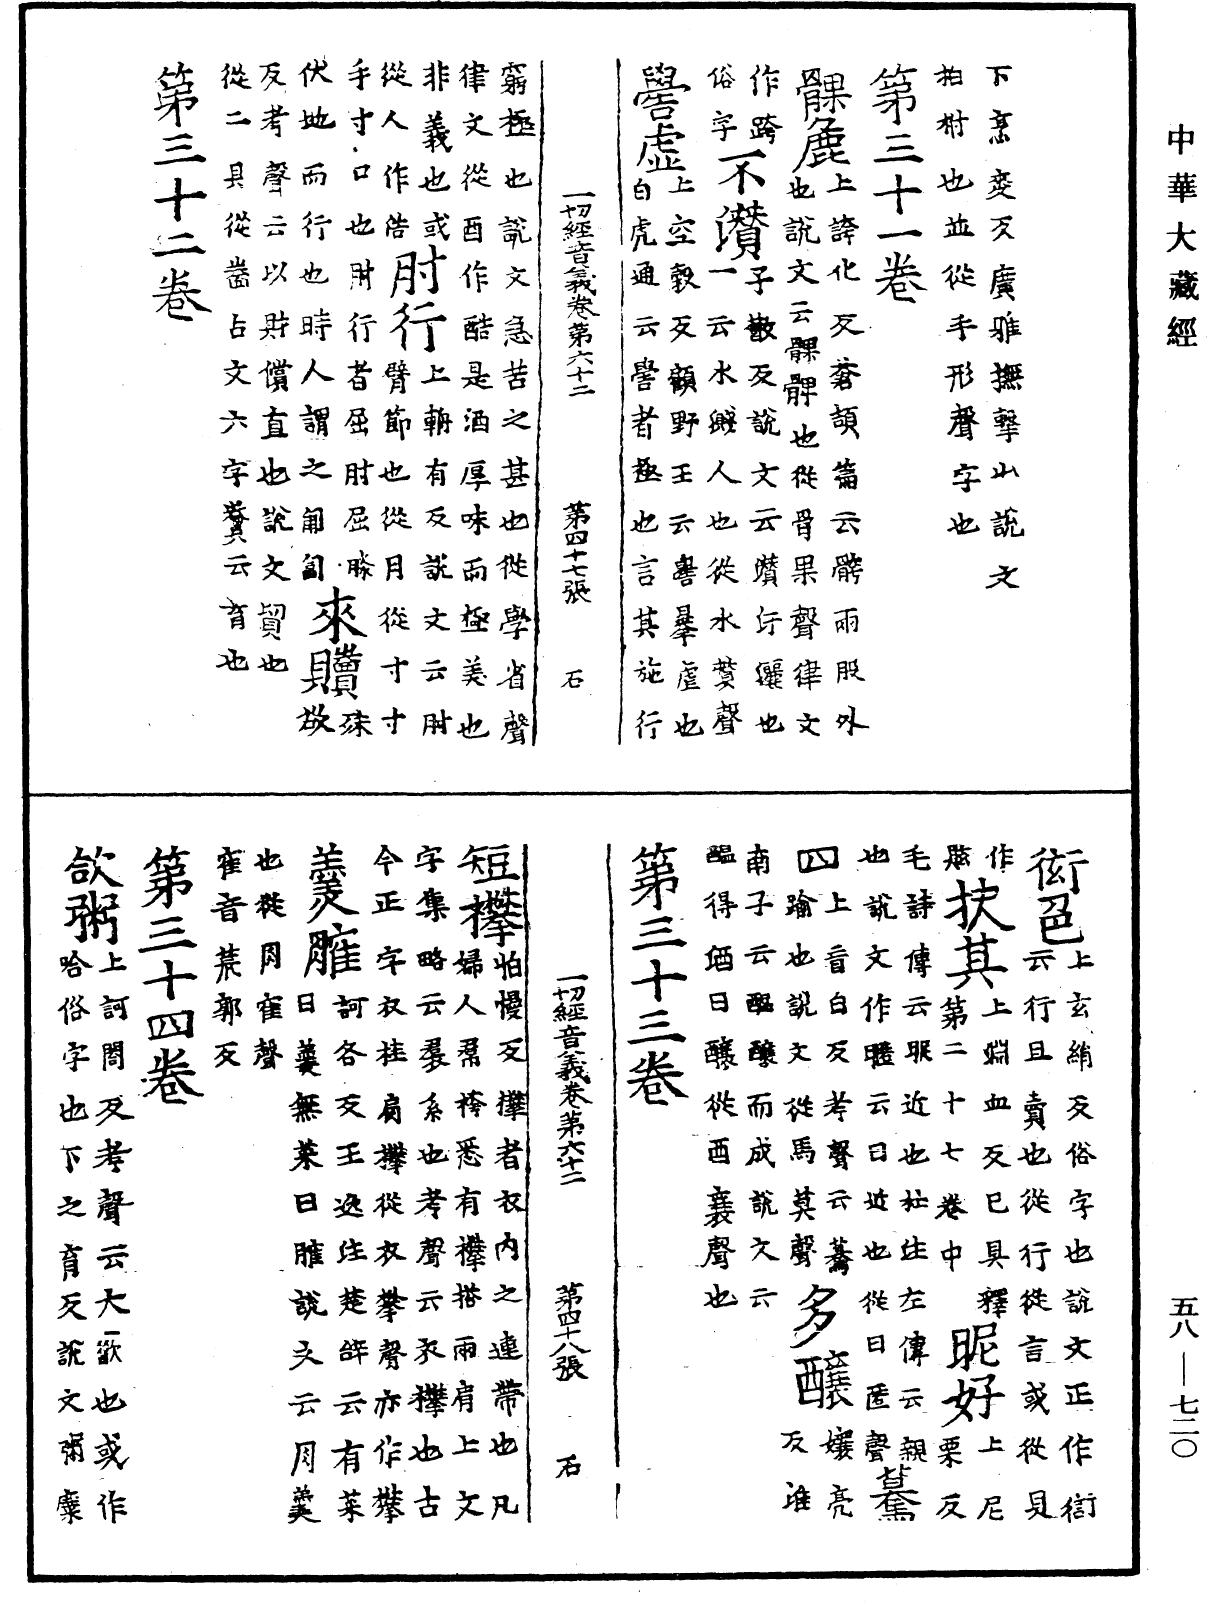 中華大藏經
下烹変反廣雅撫擊也說文
拍拊也並從手形聲字也
第三十一卷
髁麁上誇化反蒼頡篇云髂兩股外
也說文云髁髀也從骨果聲律文
作跨
俗字
不灒子散反說文云灒汙灑也
一云水濺人也從水贊聲
嚳虛上空穀反顧野王云嚳㬥虛也
白虎通云嚳者極也言其施行
一切經音義卷第六十二 第四十七張 石
窮極也說文急苦之甚也從學省聲
律文從酉作酷是酒厚味而極美也
非義也或
從人作浩
肘行上輈有反說文云肘
臂節也從月從寸寸
手寸口也肘行者屈肘屈膝
伏地而行也時人謂之匍匐
來贖殊
故
反考聲云以財償直也說文貿也
從二具從㕡占文六字㒸云育也
第三十二卷
衒色上玄絹反俗字也說文正作衒
云行且賣也從行從言或從貝
作
眩
抉其上淵血反已具釋
第二十七卷中
昵好上尼
栗反
毛詩傳云昵近也杜注左傳云親
也說文作暱云日近也從日匿聲
驀
四上音白反考聲云驀
踰也說文從馬莫聲
多釀孃亮
反淮
南子云醞釀而成說文云
醞得酒曰釀從酉襄聲也
第三十三卷
一切經音義卷第六十二 第四十八張 石
短襻怕慢反襻者衣內之連帶也凡
婦人帬袴悉有襻搭兩肩上文
字集略云裠系也考聲云衣襻也古
今正字衣桂肩襻從衣攀聲亦作襻
羮臛訶各反王逸注楚辞云有菜
曰羮無菜曰臛說文云月羮
也從月隺聲
隺音荒郭反
第三十四卷
欱粥上訶閤反考聲云大歠也或作
哈俗字也下之育反說文粥糜
五八—七二〇